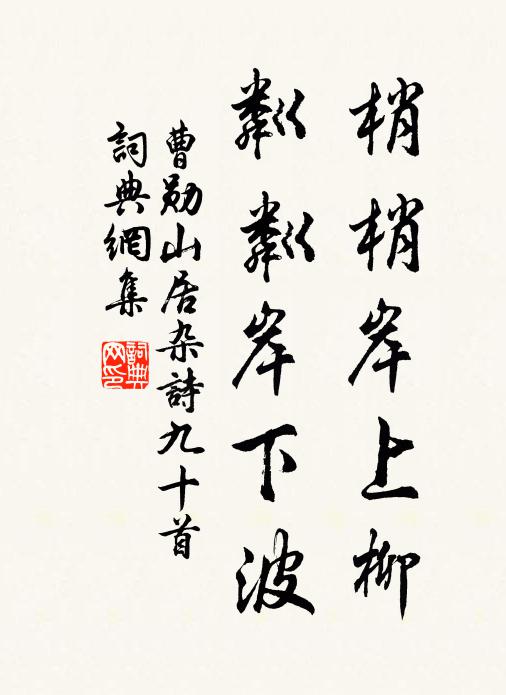 梢梢岸上柳
粼粼岸下波
曹勋山居杂詩九十首
詞典網集
詞典網印